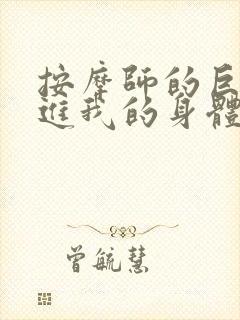 按摩師的巨
進我的身體
曾毓慧